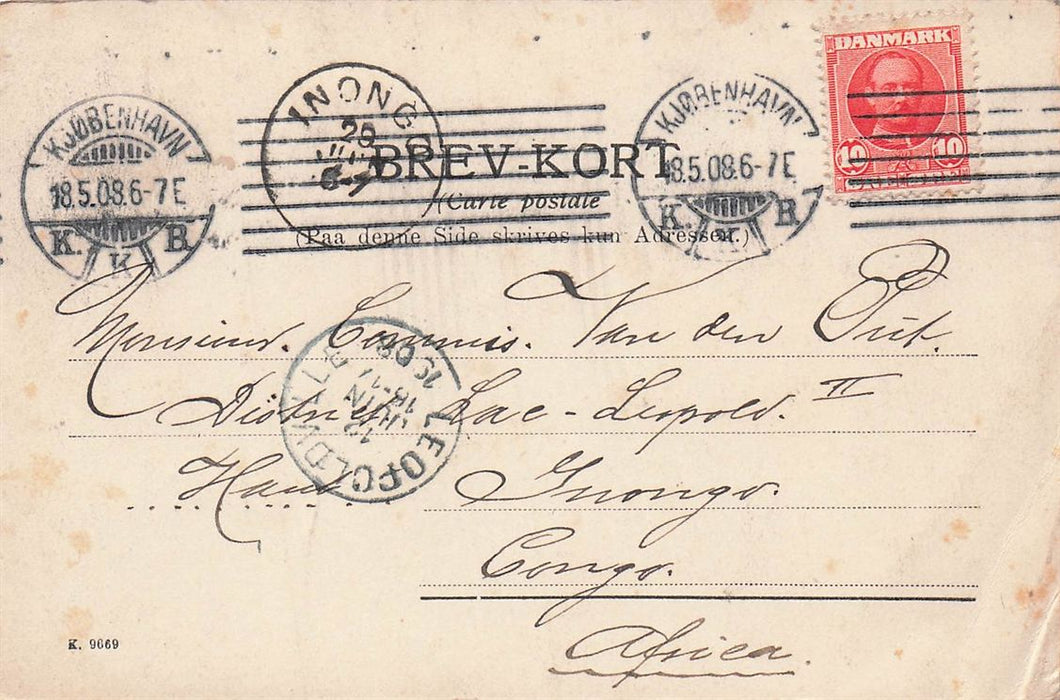 DANMARK
10 10
KJØBENHAVN
18.5.08.6-7E
K. K B.
INONGO
26
BREV-KORT
KJØBENHAVN
18.5.08.6-7E
K. B.
(Carte postale
(Paa denne Side skrives kun Adressen.)
Monsieur. Commis. Van den Put.
LEOPOLDVILLE
12
JUIN
District Lac-Leopold. II
Inongo.
Congo.
Africa.
K. 9669